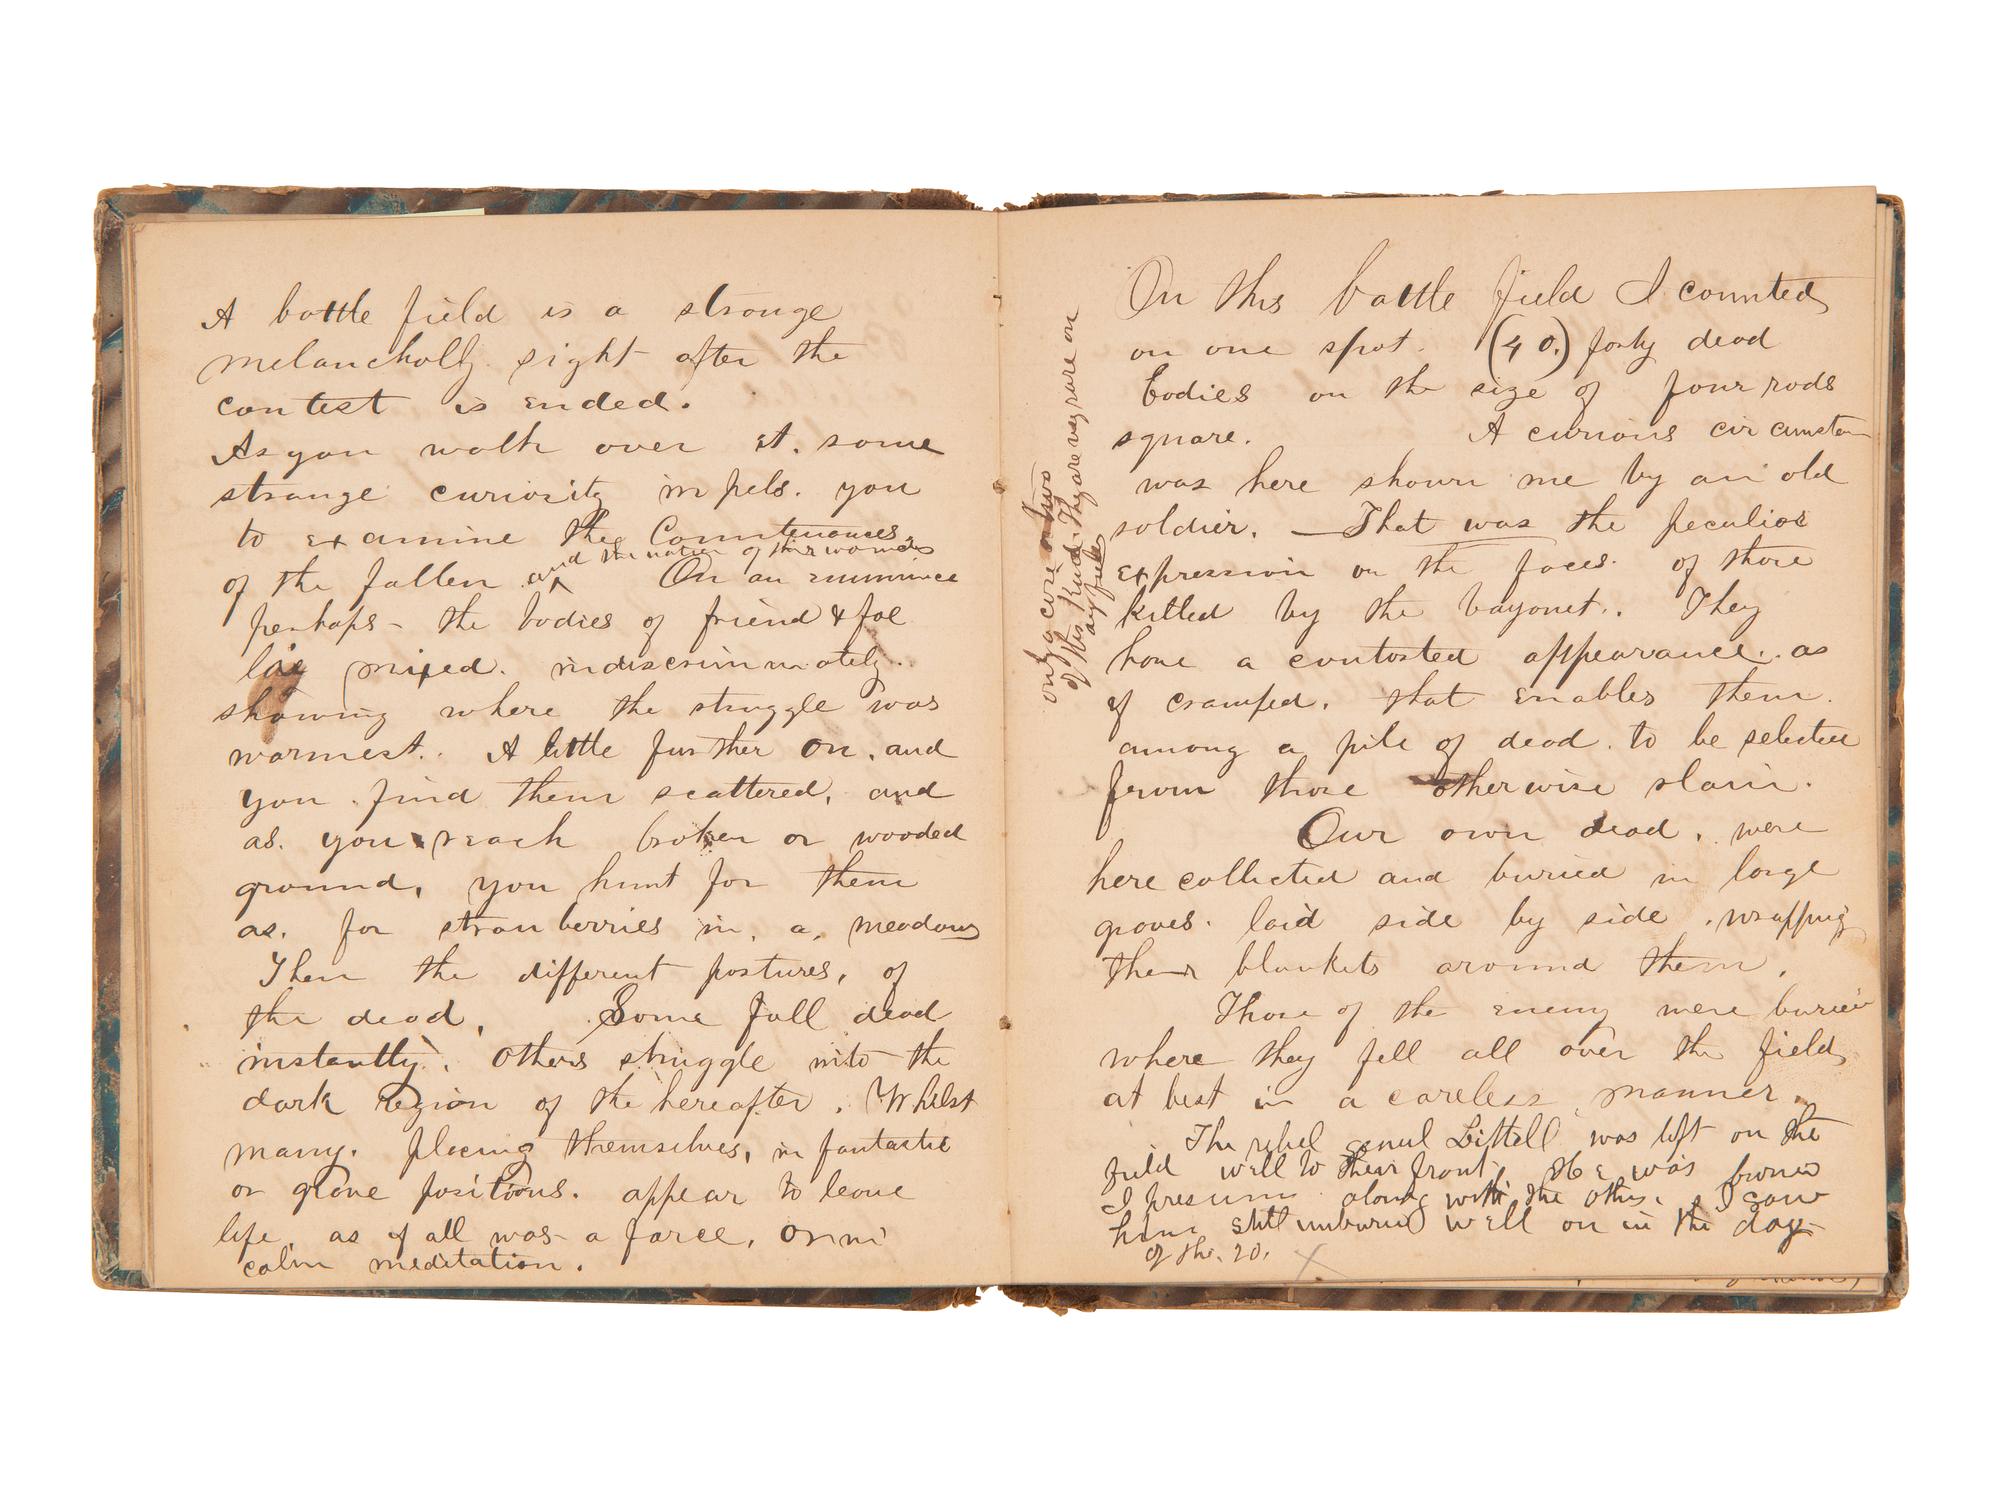 A battle field is a strange
melancholly sight after the
contest is ended.
As you walk over it. some
strange curiosity impels. you
to examine the Countenances,
and the nature of their wounds
of the fallen. On an eminince
perhaps - the bodies of friend & foe
lie mixed. indiscriminately.
showing where the struggle was
warmest. A little further on, and
you find them scattered, and
as. you reach broken or wooded
ground, you hunt for them
as. for strawberries in, a, meadow
Then the different postures, of
the dead, Some fall dead
instantly. Others struggle into the
dark region of the hereafter. Whilst
many. placing themselves, in fantastic
or grave positions. appear to leave
life, as if all was a farce, or in
calm meditation.
On this battle field I counted
on one spot. (40.) forty dead
bodies on the size of four rods
square. A curious circumstan
was here shown me by an old
soldier. — That was the peculiar
expression on the faces. of those
killed by the bayonet. They
have a contorted appearance. as
if cramped, that enables them.
among a pile of dead. to be selected
from those otherwise slain.
Our own dead, were
here collected and buried in large
graves. laid side by side. wrapping
their blankets around them,
Those of the enemy were buried
where they fell all over the field
at best in a careless manner.
The rebel genul Littell was left on the
field well to their front. He was buried
I presume along with the others, I saw
him still unburied well on in the day
of the. 20.
only a case or two
of this kind. They are very rare on
any field